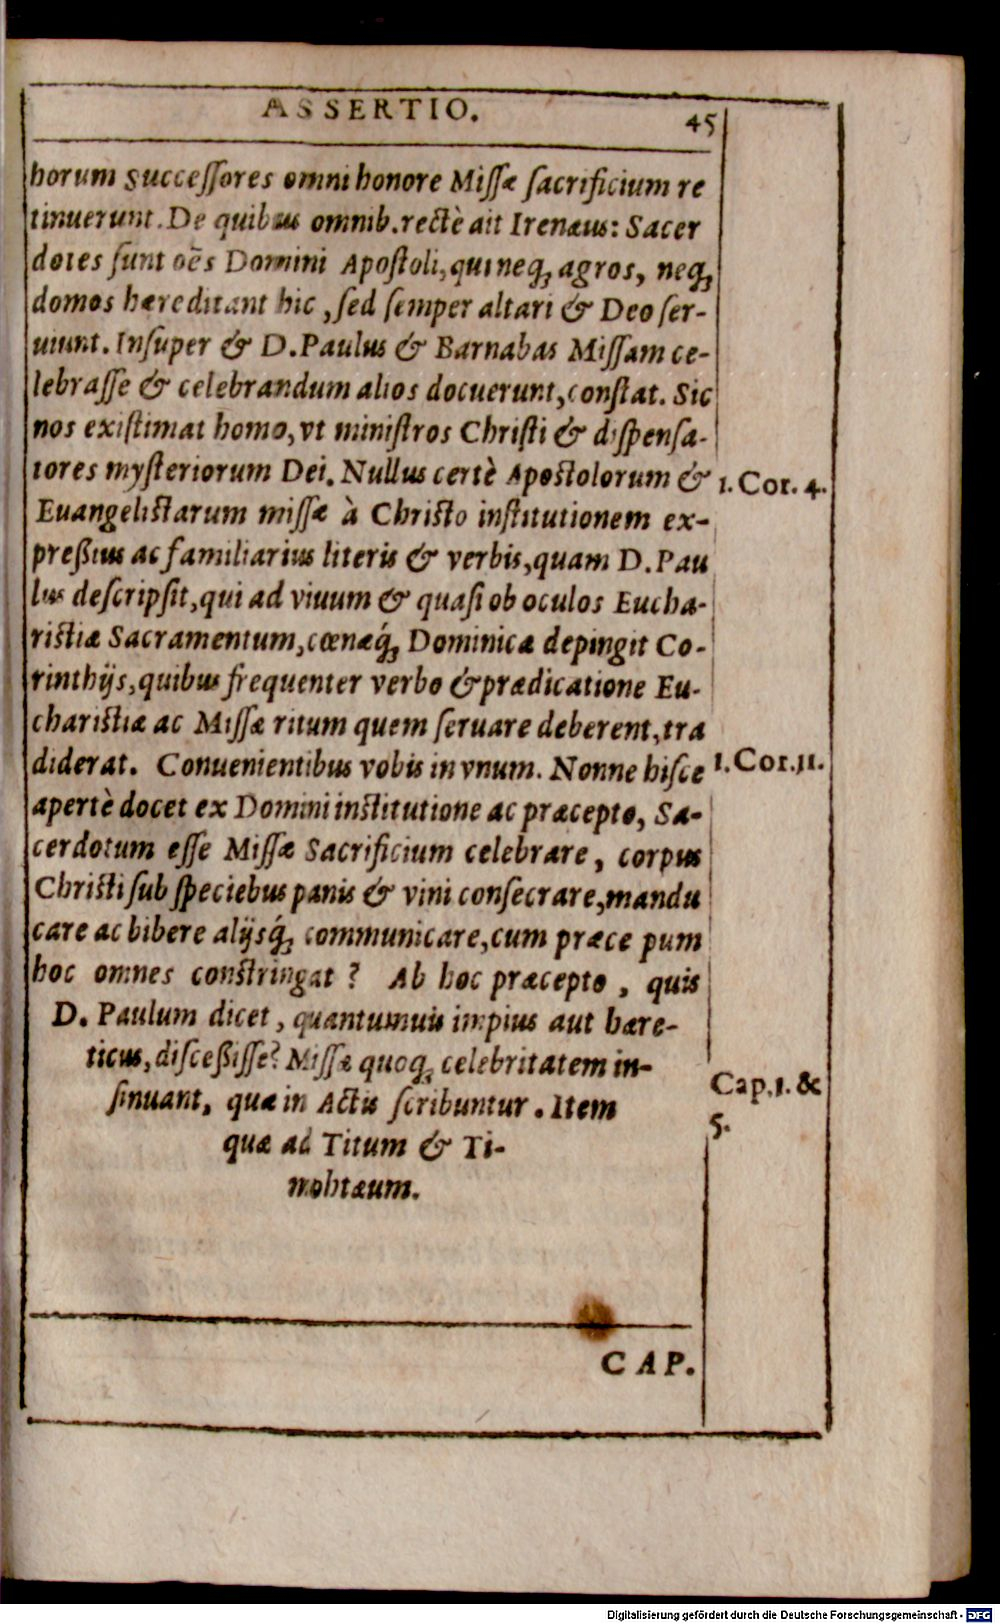 ASSERTIO.
45
horum successores omni honore Missæ sacrificium re
tinuerunt. De quibus omnib. rectè ait Irenæus: Sacer
dotes sunt oēs Domini Apostoli, qui neq; agros, neq;
domos hæreditant hic, sed semper altari & Deo ser-
uiunt. Insuper & D. Paulus & Barnabas Missam ce-
lebrasse & celebrandum alios docuerunt, constat. Sic
nos existimat homo, vt ministros Christi & dispensa-
tores mysteriorum Dei. Nullus certè Apostolorum &
1. Cor. 4.
Euangelistarum missæ à Christo institutionem ex-
preßius ac familiarius literis & verbis, quam D. Pau
lus descripsit, qui ad viuum & quasi ob oculos Eucha-
ristiæ Sacramentum, cœnæq́; Dominicæ depingit Co-
rinthijs, quibus frequenter verbo & prædicatione Eu-
charistiæ ac Missæ ritum quem seruare deberent, tra
diderat. Conuenientibus vobis in vnum. Nonne hisce
1. Cor. 11.
apertè docet ex Domini institutione ac præcepto, Sa-
cerdotum esse Missæ Sacrificium celebrare, corpus
Christi sub speciebus panis & vini consecrare, mandu
care ac bibere alijsq́; communicare, cum præce pum
hoc omnes constringat? Ab hoc præcepto, quis
D. Paulum dicet, quantumuis impius aut hære-
ticus, disceßisse? Missæ quoq; celebritatem in-
sinuant, quæ in Actis scribuntur. Item
Cap. 1. &
5.
quæ ad Titum & Ti-
mohtæum.
CAP.
Digitalisierung gefördert durch die Deutsche Forschungsgemeinschaft - DFG